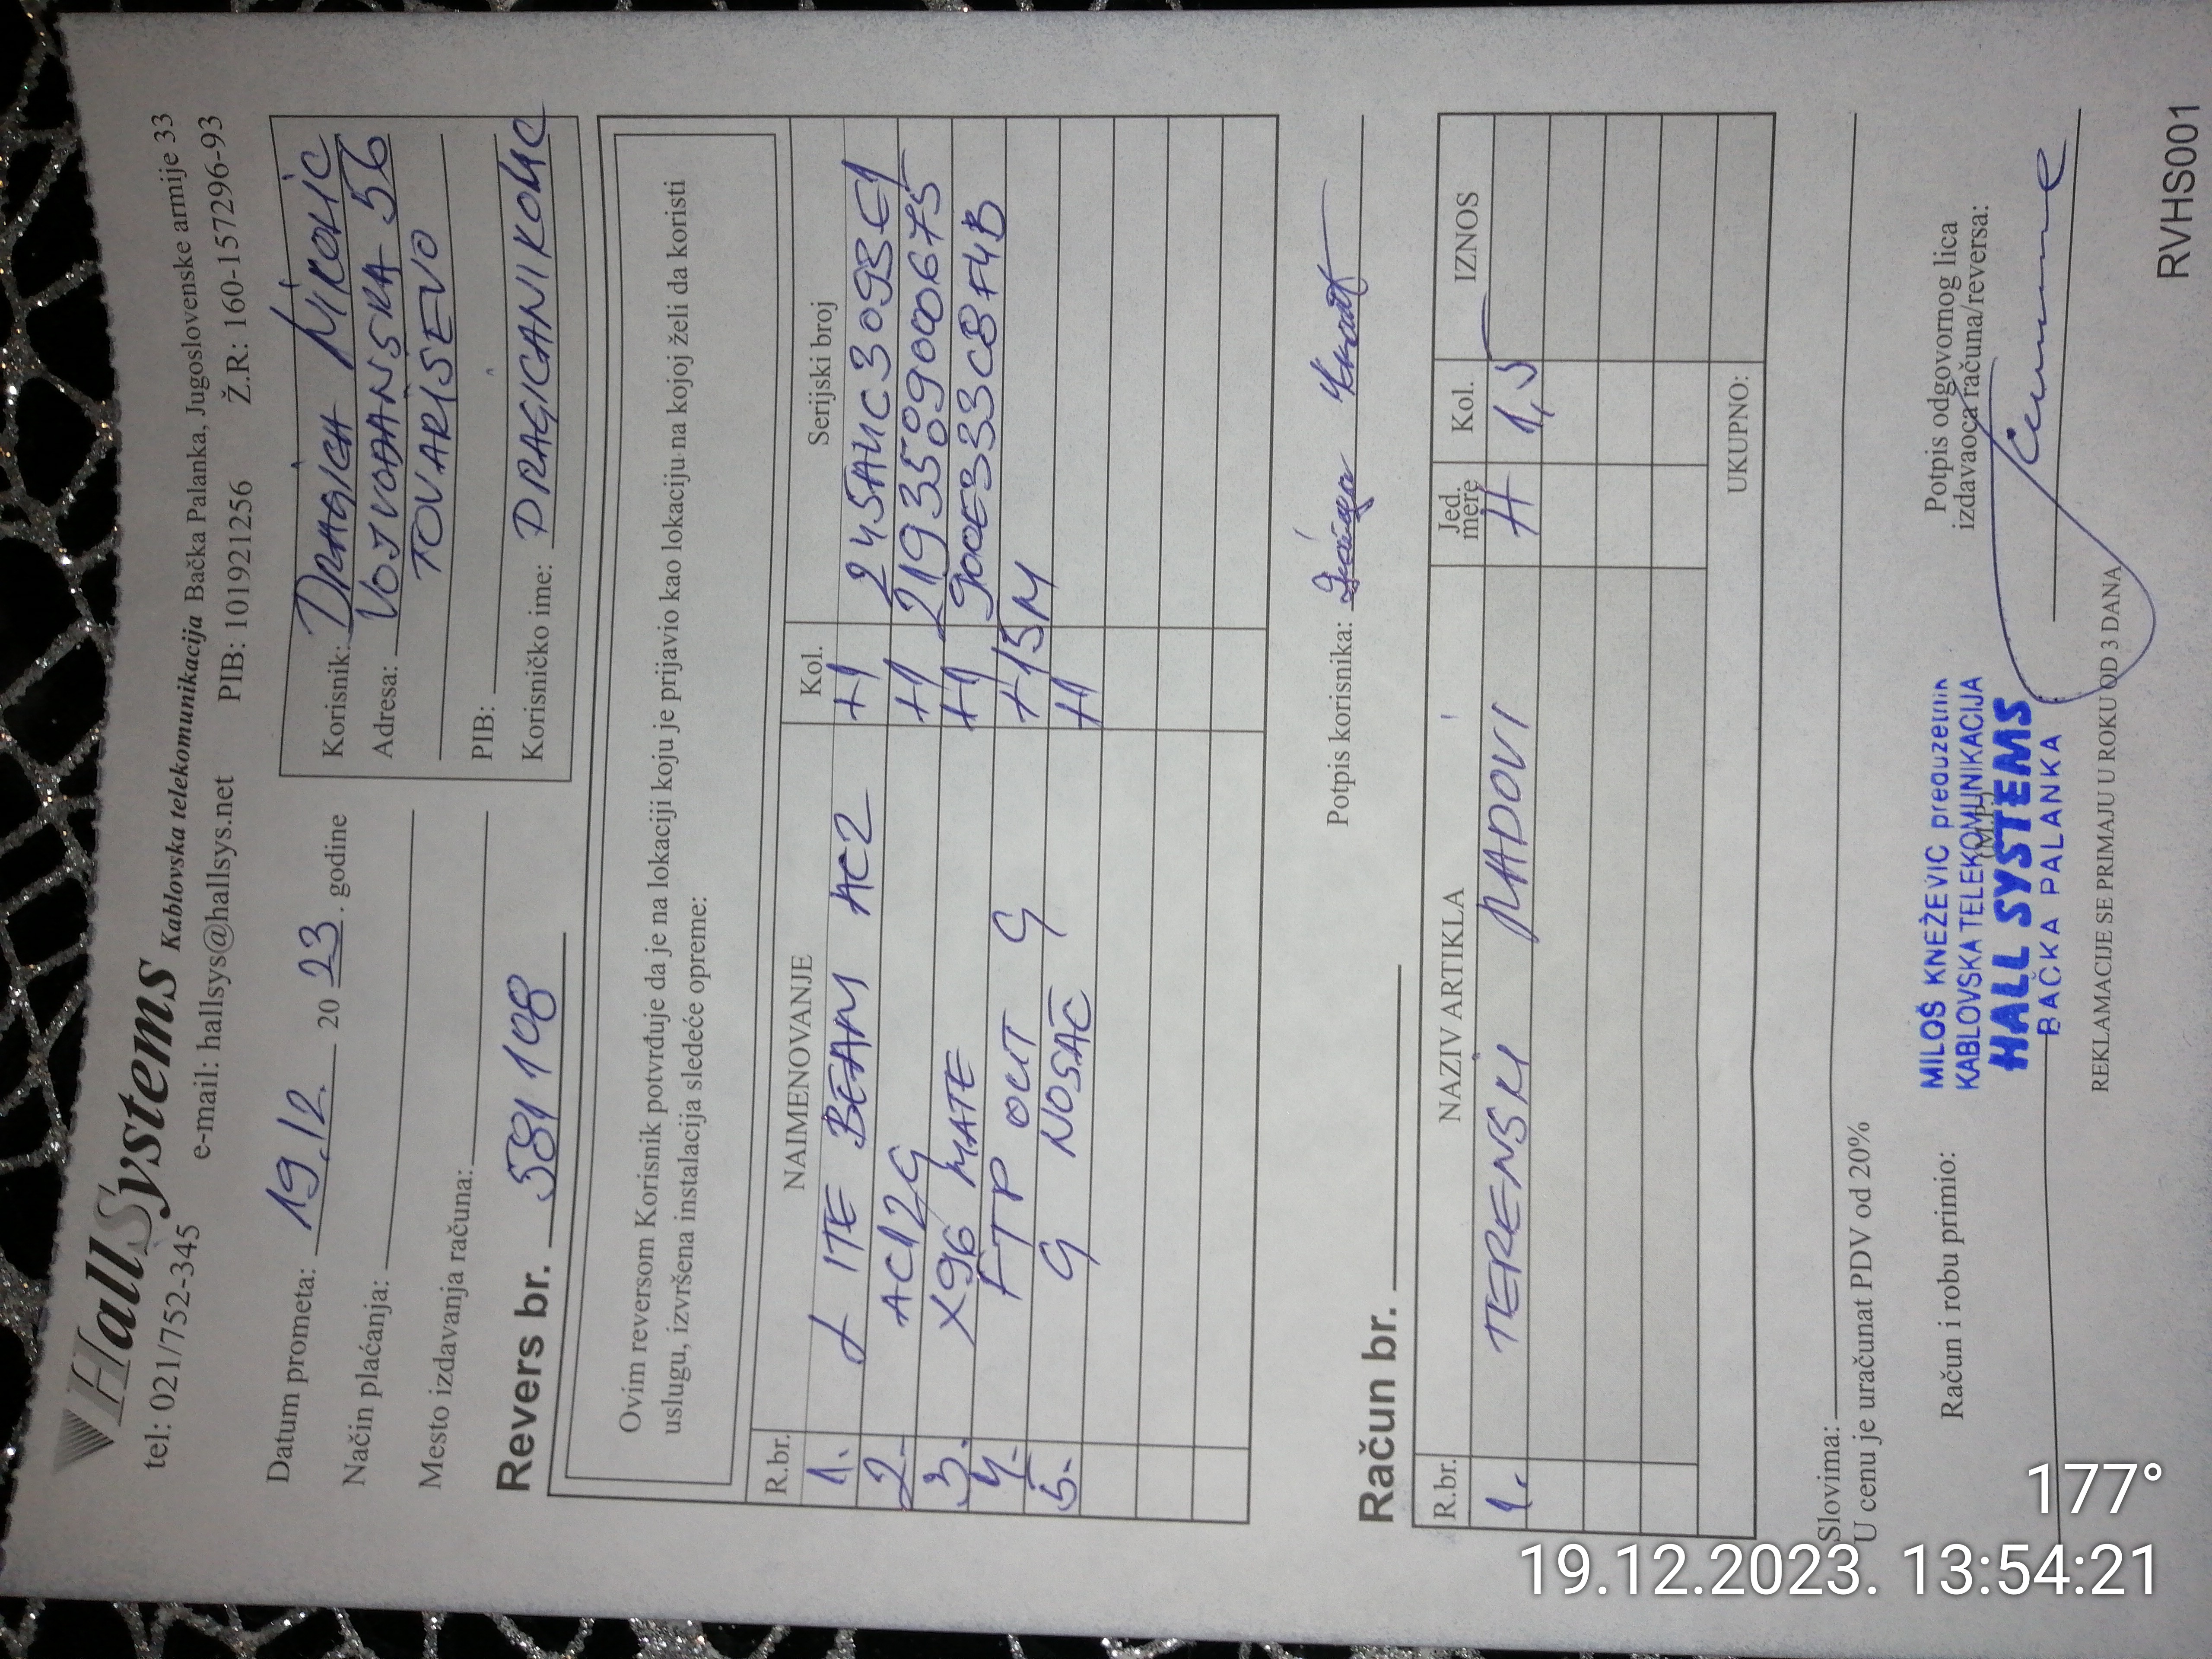 HallSystems Kablovska telekomunikacija Bačka Palanka, Jugoslovenske armije 33
tel: 021/752-345 e-mail: hallsys@hallsys.net PIB: 101921256 Ž.R: 160-157296-93
Datum prometa: 19.12. 20 23. godine
Način plaćanja:
Mesto izdavanja računa:
Revers br. 581108
Korisnik: DRAGICA
Adresa: VOJVOĐANSKA 56
TOVARIŠEVO
PIB:
Korisničko ime:
Ovim reversom Korisnik potvrđuje da je na lokaciji koju je prijavio kao lokaciju na kojoj želi da koristi
uslugu, izvršena instalacija sledeće opreme:
R.br. NAIMENOVANJE Kol. Serijski broj
1. LITE BEAM AC2 +1
2. AC12G +1 2193509000675
3. X96 MATE +1 900E33C8F4B
4. FTP OUT G +15M
5. G NOSAČ +1
Potpis korisnika:
Račun br.
R.br. NAZIV ARTIKLA Jed. mere Kol. IZNOS
1. TERENSKI RADOVI H 1,5
UKUPNO:
Slovima:
U cenu je uračunat PDV od 20%
Račun i robu primio:
(M.P.)
Potpis odgovornog lica
izdavaoca računa/reversa:
MILOŠ KNEŽEVIĆ preduzetnik
KABLOVSKA TELEKOMUNIKACIJA
HALL SYSTEMS
BAČKA PALANKA
REKLAMACIJE SE PRIMAJU U ROKU OD 3 DANA
RVHS001
177°
19.12.2023. 13:54:21